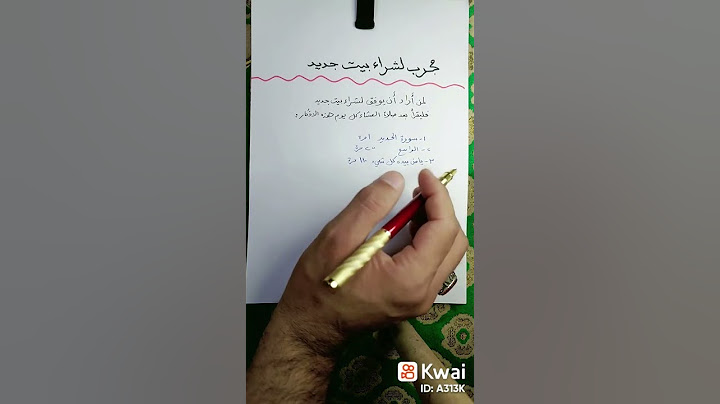 مجرب لشراء بيت جديد
لمن أراد أن يوفق لشراء بيت جديد
فليقرأ بعد صلاة العشاء كل يوم هذه الأذكار:
١- سورة الحديد ١ مرة
٢- الواسع مرة
٣- يا من بيده كل شيء ١١٠ مرة
Kwai
ID: A313K